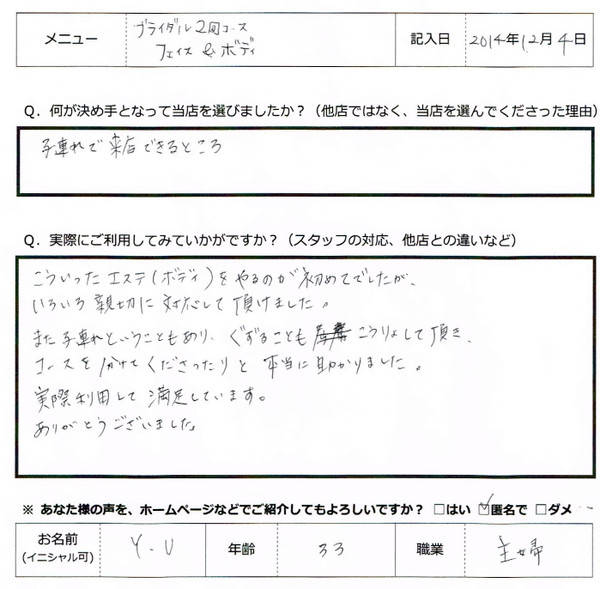 メニュー ブライダル2回コース
フェイス&ボディ
記入日 2014年12月4日
Q. 何が決め手となって当店を選びましたか?(他店ではなく、当店を選んでくださった理由)
子連れで来店できるところ
Q. 実際にご利用してみていかがですか?(スタッフの対応、他店との違いなど)
こういったエステ(ボディ)をやるのが初めてでしたが、
いろいろ親切に対応して頂けました。
また子連れということもあり、ぐずることもこうりょして頂き、
コースを分けてくださったりと本当に助かりました。
実際利用して満足しています。
ありがとうございました。
※ あなた様の声を、ホームページなどでご紹介してもよろしいですか? □はい ☑匿名で □ダメ
お名前 (イニシャル可) Y.U 年齢 33 職業 主婦